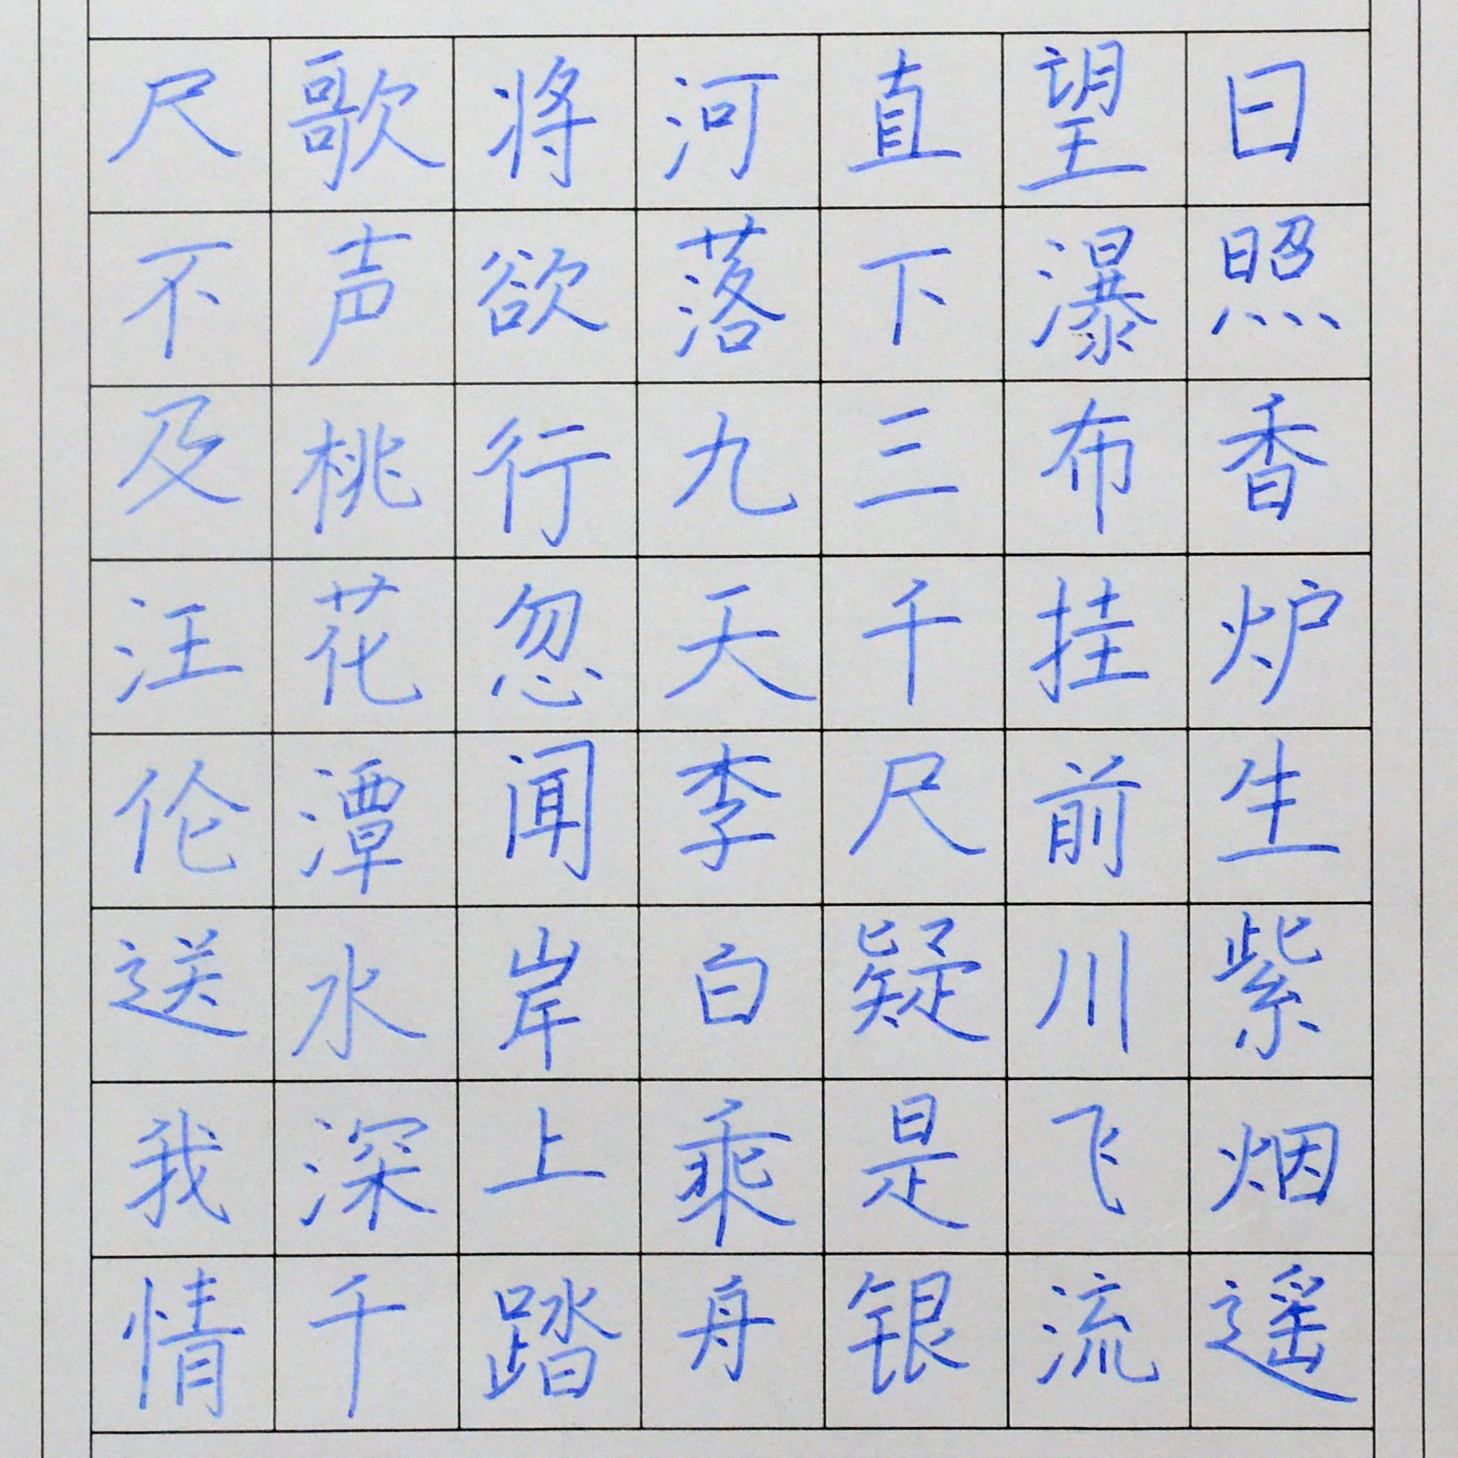 日照香炉生紫烟遥
望瀑布挂前川飞流
直下三千尺疑是银
河落九天李白乘舟
将欲行忽闻岸上踏
歌声桃花潭水深千
尺不及汪伦送我情